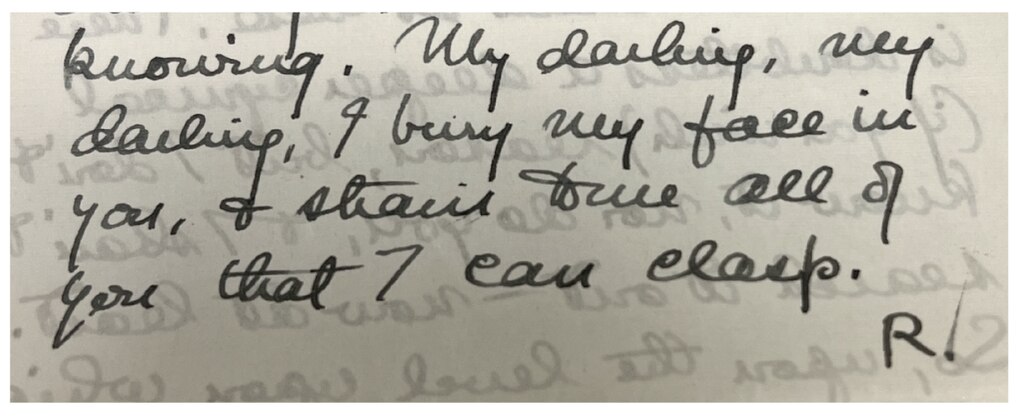 knowing. My darling, my
darling, I bury my face in
you, & strain to me all of
you that I can clasp.
R.